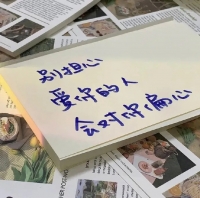 别担心
爱你的人
会对你偏心